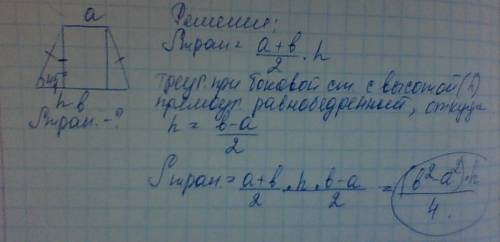 a
45°
h
в
Sтрап. - ?
Решение:
Sтрап = a+в/2 · h
треуг. при боковой ст с высотой (h)
прямоуг. равнобедренный, откуда
h = в-a/2
Sтрап. = a+в/2 · h · в-a/2 = (в²a²)·h/4.